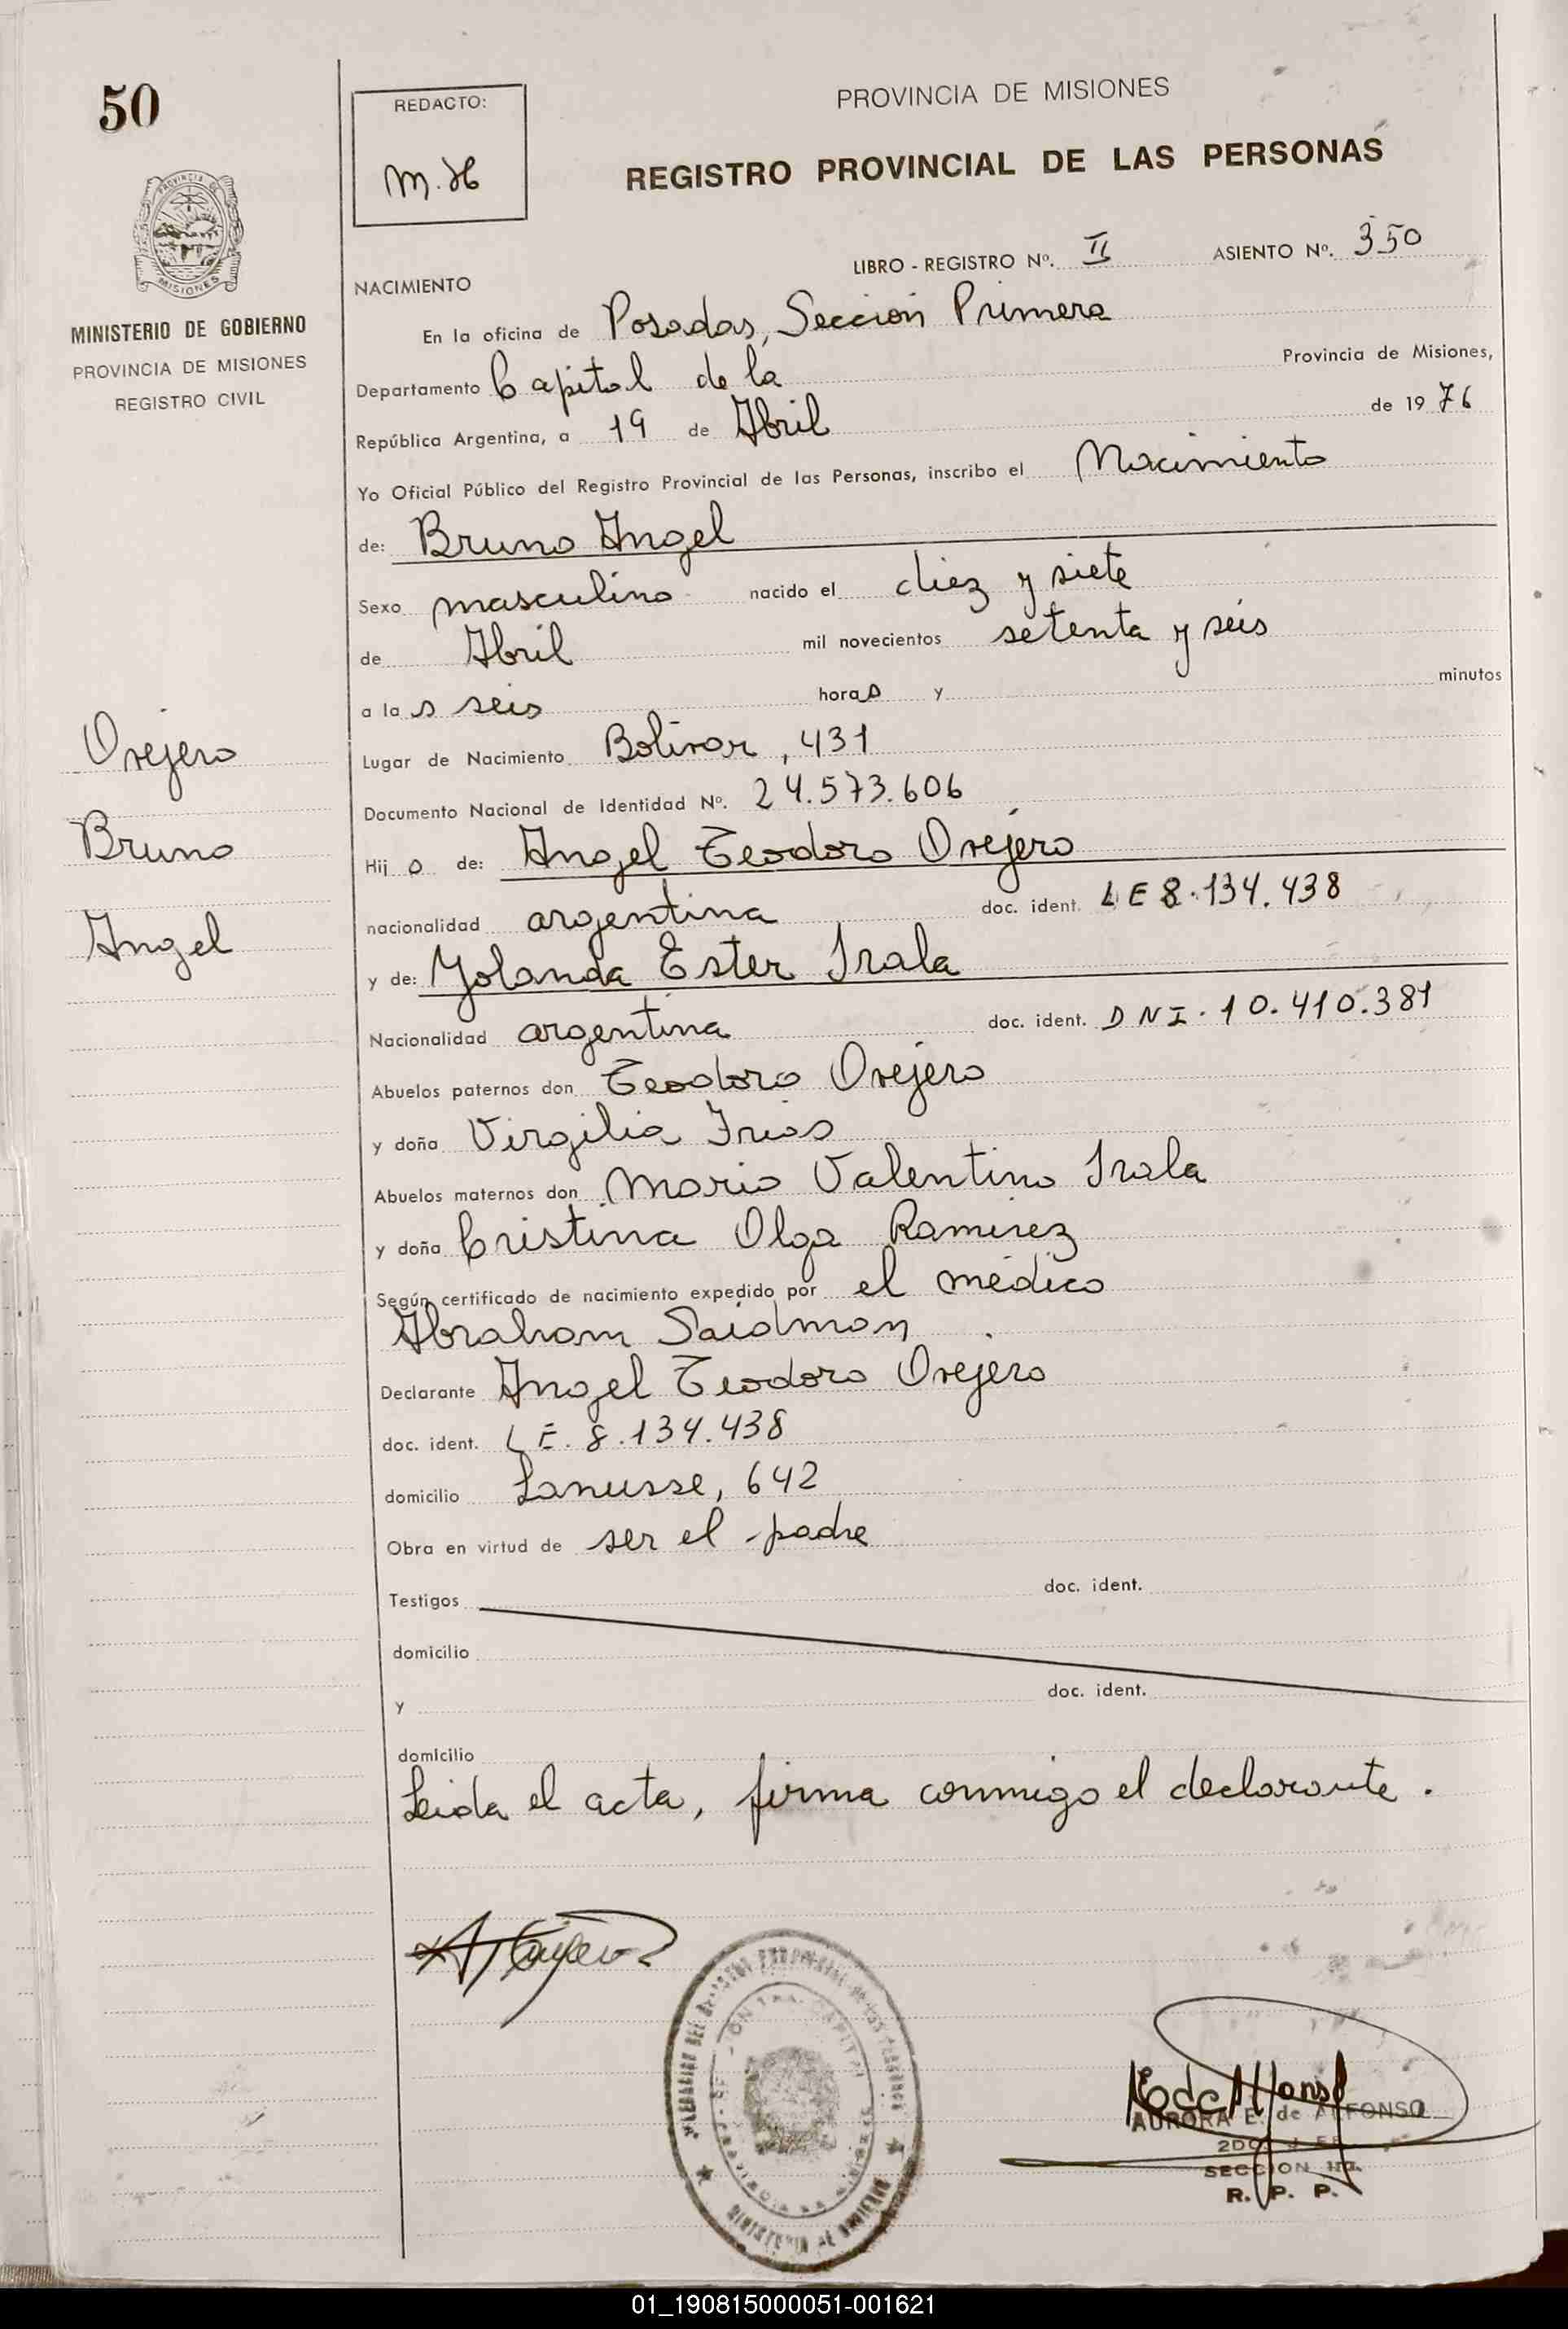 50
REDACTO:
M. H
PROVINCIA DE MISIONES
REGISTRO PROVINCIAL DE LAS PERSONAS
LIBRO - REGISTRO Nº. II ASIENTO Nº. 350
MISIONES
MINISTERIO DE GOBIERNO
PROVINCIA DE MISIONES
REGISTRO CIVIL
NACIMIENTO
En la oficina de Posadas, Sección Primera
Departamento Capital de la Provincia de Misiones,
República Argentina, a 19 de Abril de 1976
Yo Oficial Público del Registro Provincial de las Personas, inscribo el Nacimiento
de: Bruno Angel
Sexo masculino nacido el diez y siete
de Abril mil novecientos setenta y seis
a las seis horas y minutos
Lugar de Nacimiento Bolívar, 431
Documento Nacional de Identidad Nº. 24.573.606
Hijo de: Angel Teodoro Ovejero
nacionalidad argentina doc. ident. L E 8.134.438
y de: Yolanda Ester Irala
Nacionalidad argentina doc. ident. D N I. 10.410.381
Abuelos paternos don Teodoro Ovejero
y doña Virgilia Frias
Abuelos maternos don Mario Valentino Irala
y doña Cristina Olga Ramirez
Según certificado de nacimiento expedido por el médico
Abraham Saidman
Declarante Angel Teodoro Ovejero
doc. ident. L E. 8.134.438
domicilio Lanusse, 642
Obra en virtud de ser el padre
Testigos doc. ident.
domicilio
y doc. ident.
domicilio
Leida el acta, firma conmigo el declarante.
Ovejero
Bruno
Angel
MINISTERIO DE GOBIERNO
AURORA E. de ALFONSO
SECCION 1ra.
R. P. P.
01_190815000051-001621